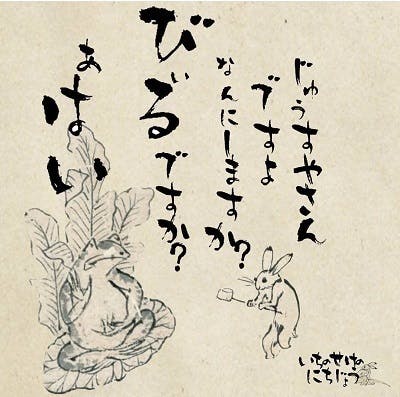 じゅうすやさん
ですよ
なんにしますか?
びぃるですか?
ぁはい
いちのせけの
にちじょう